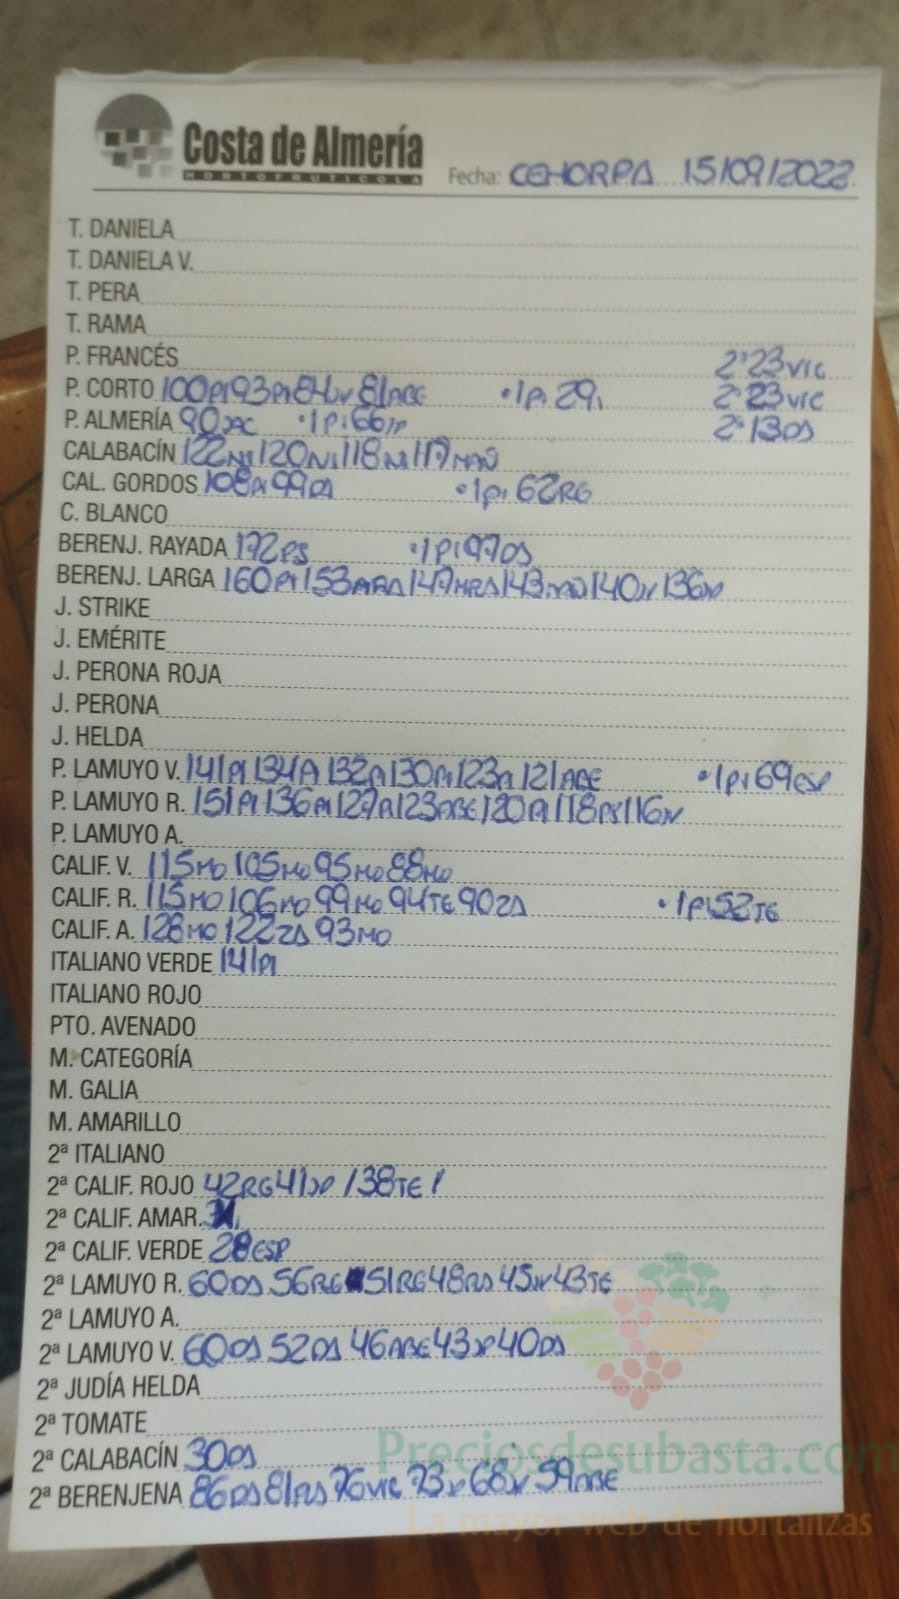 Costa de Almería
HORTOFRUTICOLA
Fecha: CEHORPA 15/09/2022
T. DANIELA
T. DANIELA V.
T. PERA
T. RAMA
P. FRANCÉS 2ª 23 VIC
P. CORTO 100 PI 93 PI 84 JV 81 ABE · 1 PI 29 2ª 23 VIC
P. ALMERÍA 90 · 1 PI 66 2ª 13 DS
CALABACÍN 122 120 118 117
CAL. GORDOS 108 PI 99 DS · 1 PI 62 RG
C. BLANCO
BERENJ. RAYADA 172 PS · 1 PI 97 DS
BERENJ. LARGA 160 PI 153 147 143 140 JV 136
J. STRIKE
J. EMÉRITE
J. PERONA ROJA
J. PERONA
J. HELDA
P. LAMUYO V. 141 PI 134 PI 132 PI 130 PI 123 PI 121 ABE · 1 PI 69 ESP
P. LAMUYO R. 151 PI 136 PI 127 PI 123 ABE 120 PI 118 PS 116 JV
P. LAMUYO A.
CALIF. V. 115 MO 105 MO 95 MO 88 MO
CALIF. R. 115 MO 106 MO 99 MO 94 TE 90 ZA · 1 PI 52 TE
CALIF. A. 128 MO 122 ZA 93 MO
ITALIANO VERDE 141 PI
ITALIANO ROJO
PTO. AVENADO
M. CATEGORÍA
M. GALIA
M. AMARILLO
2ª ITALIANO
2ª CALIF. ROJO 42 RG 41 / 38 TE /
2ª CALIF. AMAR.
2ª CALIF. VERDE 28 ESP
2ª LAMUYO R. 60 DS 56 RG 51 RG 48 45 JV 43 TE
2ª LAMUYO A.
2ª LAMUYO V. 60 DS 52 DS 46 ABE 43 40 DS
2ª JUDÍA HELDA
2ª TOMATE
2ª CALABACÍN 30 DS
2ª BERENJENA 86 DS 81 76 VIC 73 68 JV 59 ABE
Preciosdesubasta.com
La mayor web de hortalizas